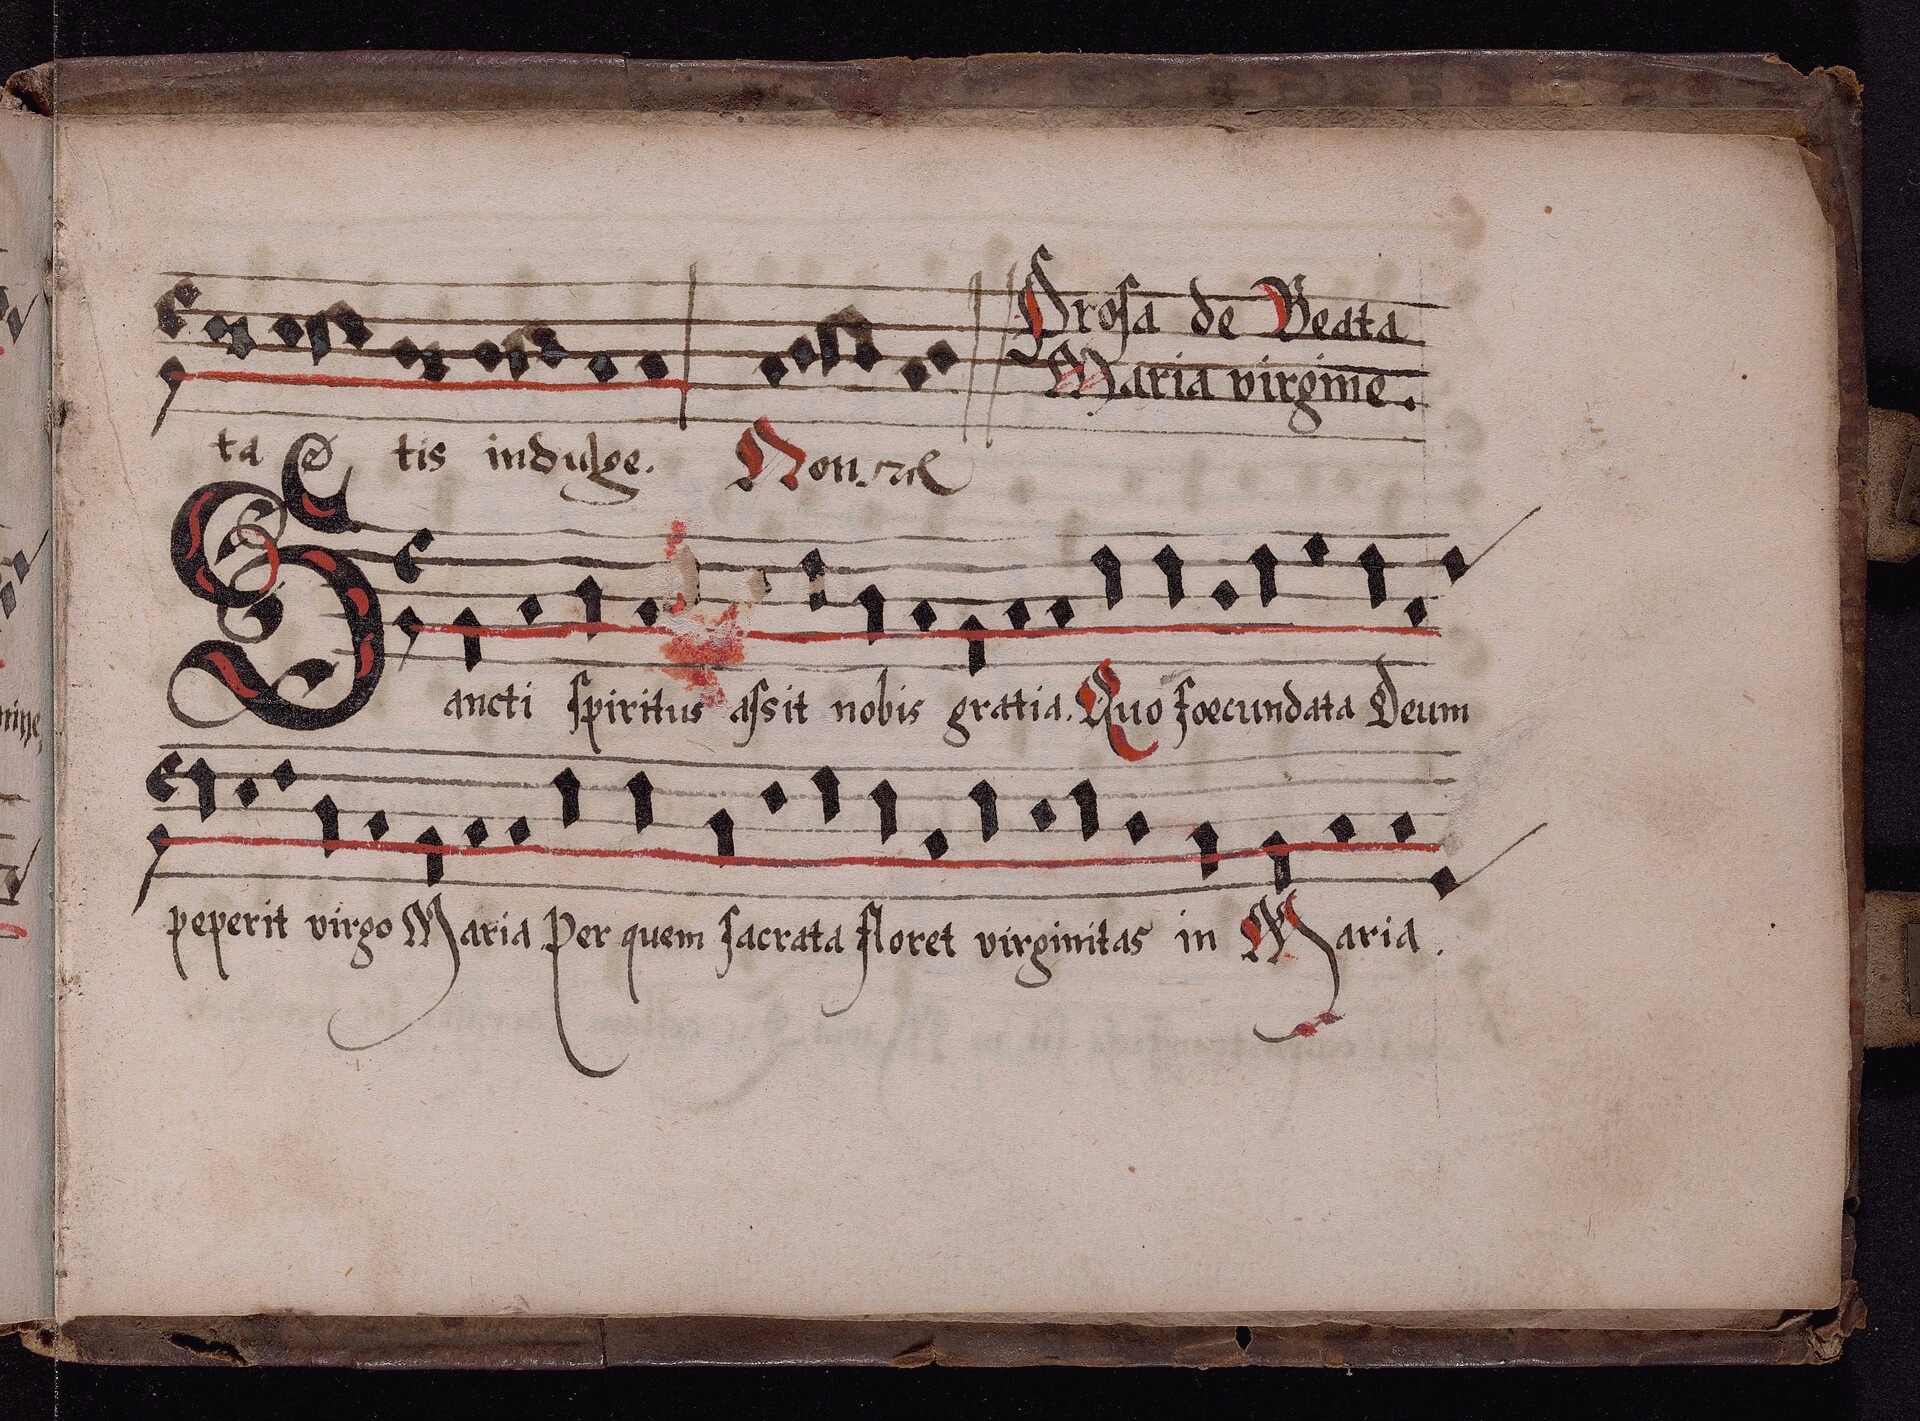 Prosa de Beata
Maria virgine.
ta tis indulge. Non
Sancti spiritus assit nobis gratia. Quo foecundata Deum
peperit virgo Maria Per quem sacrata floret virginitas in Maria.